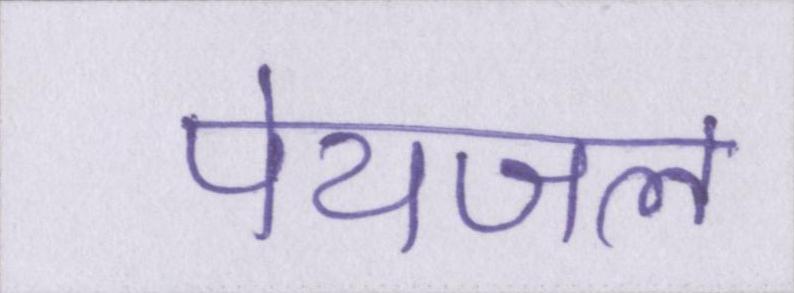 पेयजल